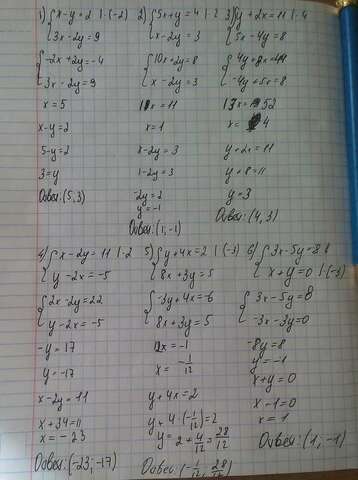 1) {x-y=2 |·(-2)
{3x-2y=9
{-2x+2y=-4
{3x-2y=9
x=5
x-y=2
5-y=2
3=y
Ответ: (5,3)
2) {5x+y=4 |·2
{x-2y=3
{10x+2y=8
{x-2y=3
11x=11
x=1
x-2y=3
1-2y=3
-2y=2
y=-1
Ответ: (1,-1)
3) {y+2x=11 |·4
{5x-4y=8
{4y+8x=44
{-4y+5x=8
13x=52
x=4
y+2x=11
y+8=11
y=3
Ответ: (4,3)
4) {x-2y=11 |·2
{y-2x=-5
{2x-2y=22
{y-2x=-5
-y=17
y=-17
x-2y=11
x+34=11
x=-23
Ответ: (-23; -17)
5) {y+4x=2 |·(-3)
{8x+3y=5
{-3y+4x=-6
{8x+3y=5
12x=-1
x=-1/12
y+4x=2
y+4·(-1/12)=2
y=2+4/12=28/12
Ответ (-1/12; 28/12)
6) {3x-5y=8
{x+y=0 |·(-3)
{3x-5y=8
{-3x-3y=0
-8y=8
y=-1
x+y=0
x-1=0
x=1
Ответ: (1; -1)